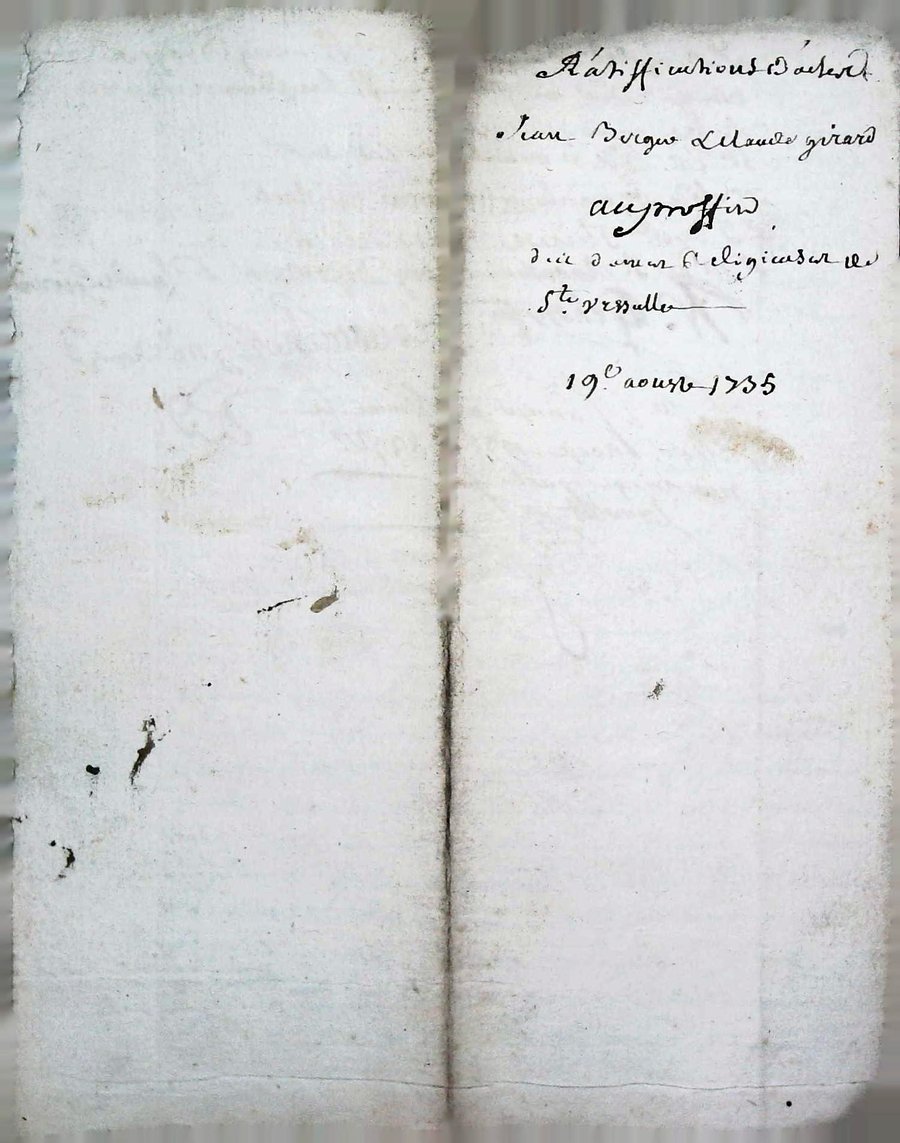 Ratiffications d'actes
Jean Burgue & Claude girard
au proffit
des dames Religieuses de
Ste. Vrsulle
19e. aoust 1735